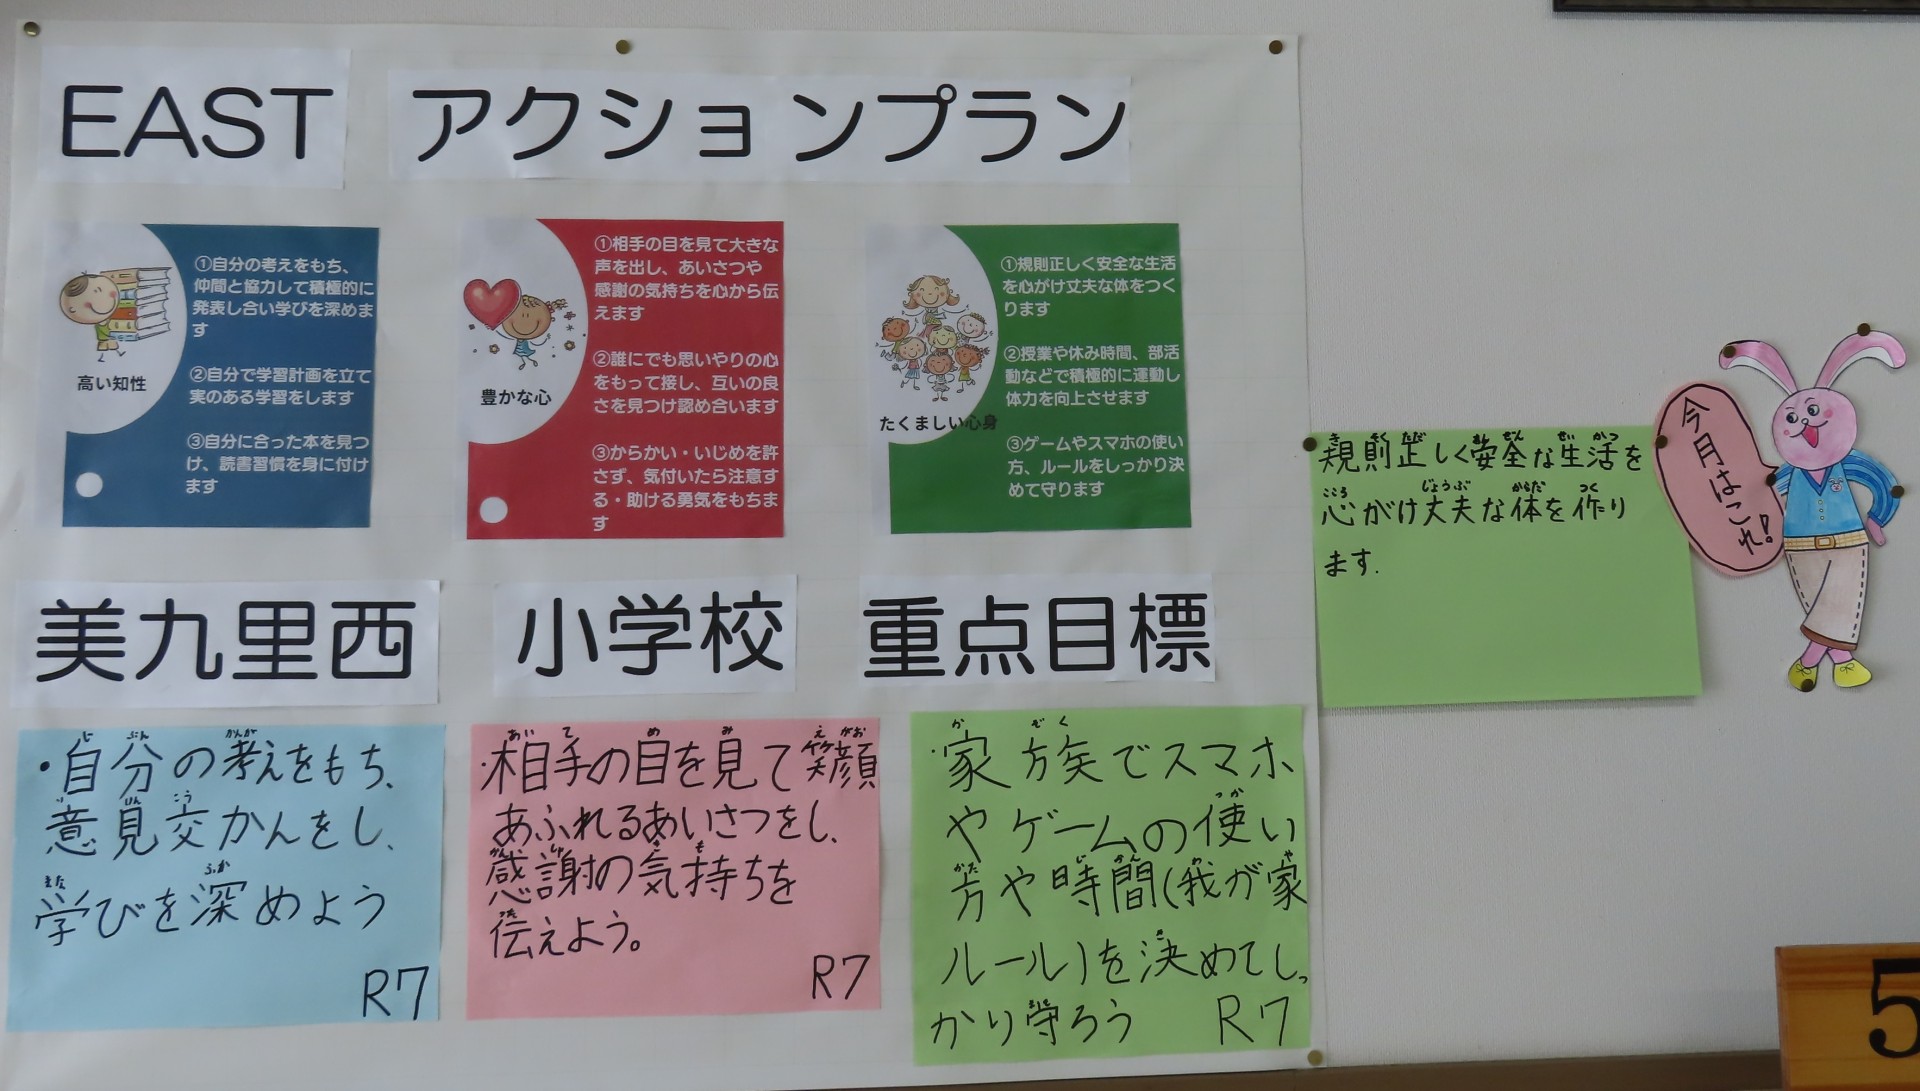 EAST アクションプラン
①自分の考えをもち、
仲間と協力して積極的に
発表し合い学びを深めま
す
②自分で学習計画を立て
実のある学習をします
③自分に合った本を見つ
け、読書習慣を身に付け
ます
高い知性
①相手の目を見て大きな
声を出し、あいさつや
感謝の気持ちを心から伝
えます
②誰にでも思いやりの心
をもって接し、互いの良
さを見つけ認め合います
③からかい・いじめを許
さず、気付いたら注意す
る・助ける勇気をもちま
す
豊かな心
①規則正しく安全な生活
を心がけ丈夫な体をつく
ります
②授業や休み時間、部活
動などで積極的に運動し
体力を向上させます
③ゲームやスマホの使い
方、ルールをしっかり決
めて守ります
たくましい心身
美九里西 小学校 重点目標
じ ぶん かんが
・自分の考えをもち、
い けん こう
意見交かんをし、
まな ふか
学びを深めよう
R7
あい て め み え がお
・相手の目を見て笑顔
あふれるあいさつをし、
かん しゃ き も
感謝の気持ちを
つた
伝えよう。
R7
か ぞく
・家族でスマホ
つか
やゲームの使い
かた じ かん わ や
方や時間(我が家
き
ルール)を決めてしっ
まも
かり守ろう
R7
き そく ただ あん ぜん せい かつ
規則正しく安全な生活を
こころ じょうぶ からだ つく
心がけ丈夫な体を作り
ます.
今月はこれ!
5